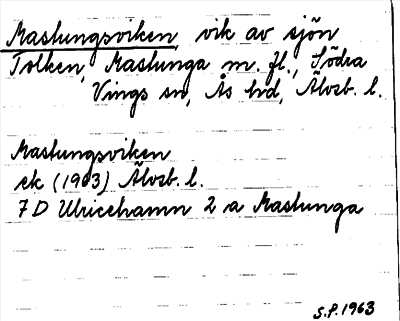 Mastungsviken, vik av sjön
Tolken, Mastunga m. fl., Södra
Vings sn, Ås hd, Älvsb. l.
Mastungsviken
ek (1963) Älvsb. l.
7 D Ulricehamn 2 a Mastunga
S.P. 1963